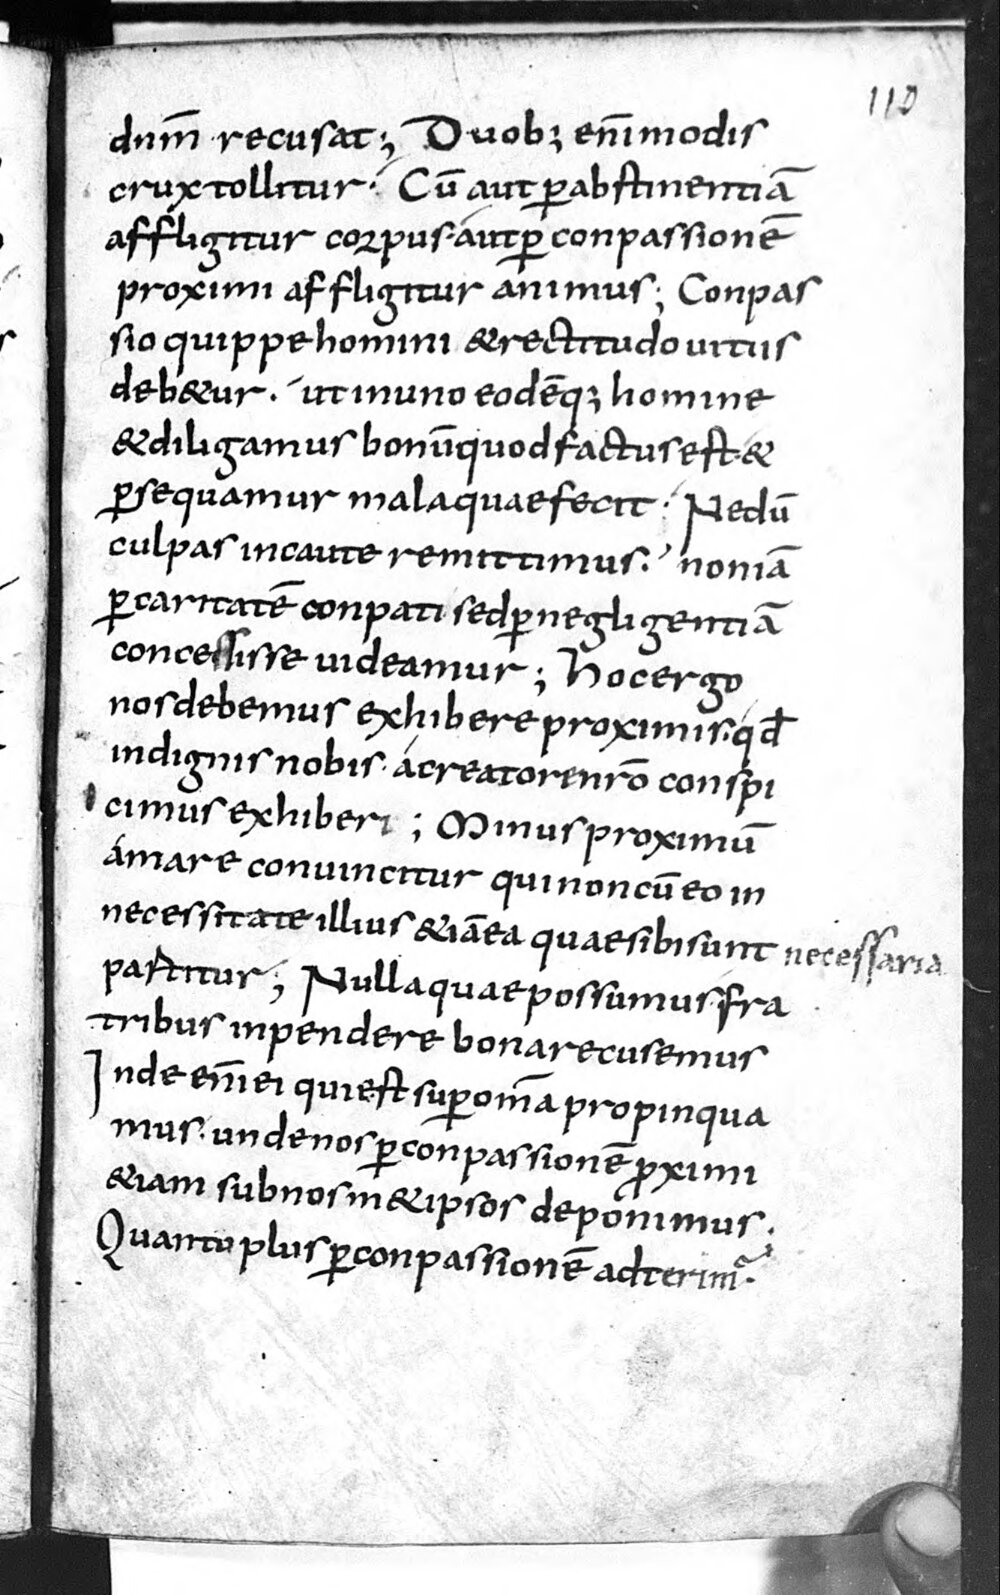 110
dnm̄ recusat; Duob; enīmodis
crux tollitur· Cū aut p̲abstinentiā
affligitur corpus·áut p̲ conpassionē
proximi affligitur animus; Conpas
sio quippe homini &rectitudo uitiis
deb&ur· ut inuno eodēq; homine
&diligamus bonū quod factus est·&
p̲sequamur mala quae fecit· Nedū
culpas incaute remittimus· noniā
p̲caritatē conpati sed p̲negligentiā
concessisse uideamur; Hoc ergo
nos debemus exhibere proximis·qd̄
indignis nobis· ácreatore nr̄o conspi
cimus exhiberi; Minus proximū
ámare conuincitur qui non cū eo in
necessitate illius &iā ea quae sibi sunt necessaria
partitur; Nulla quae possumus fra
tribus inpendere bona recusemus
Inde enī ei qui est sup̲ om̄a propinqua
mus· unde nos p̲conpassionē p̲ximi
&iam sub nosm&ipsos deponimus·
Quanto plus p̲conpassionē ad terim᷑·